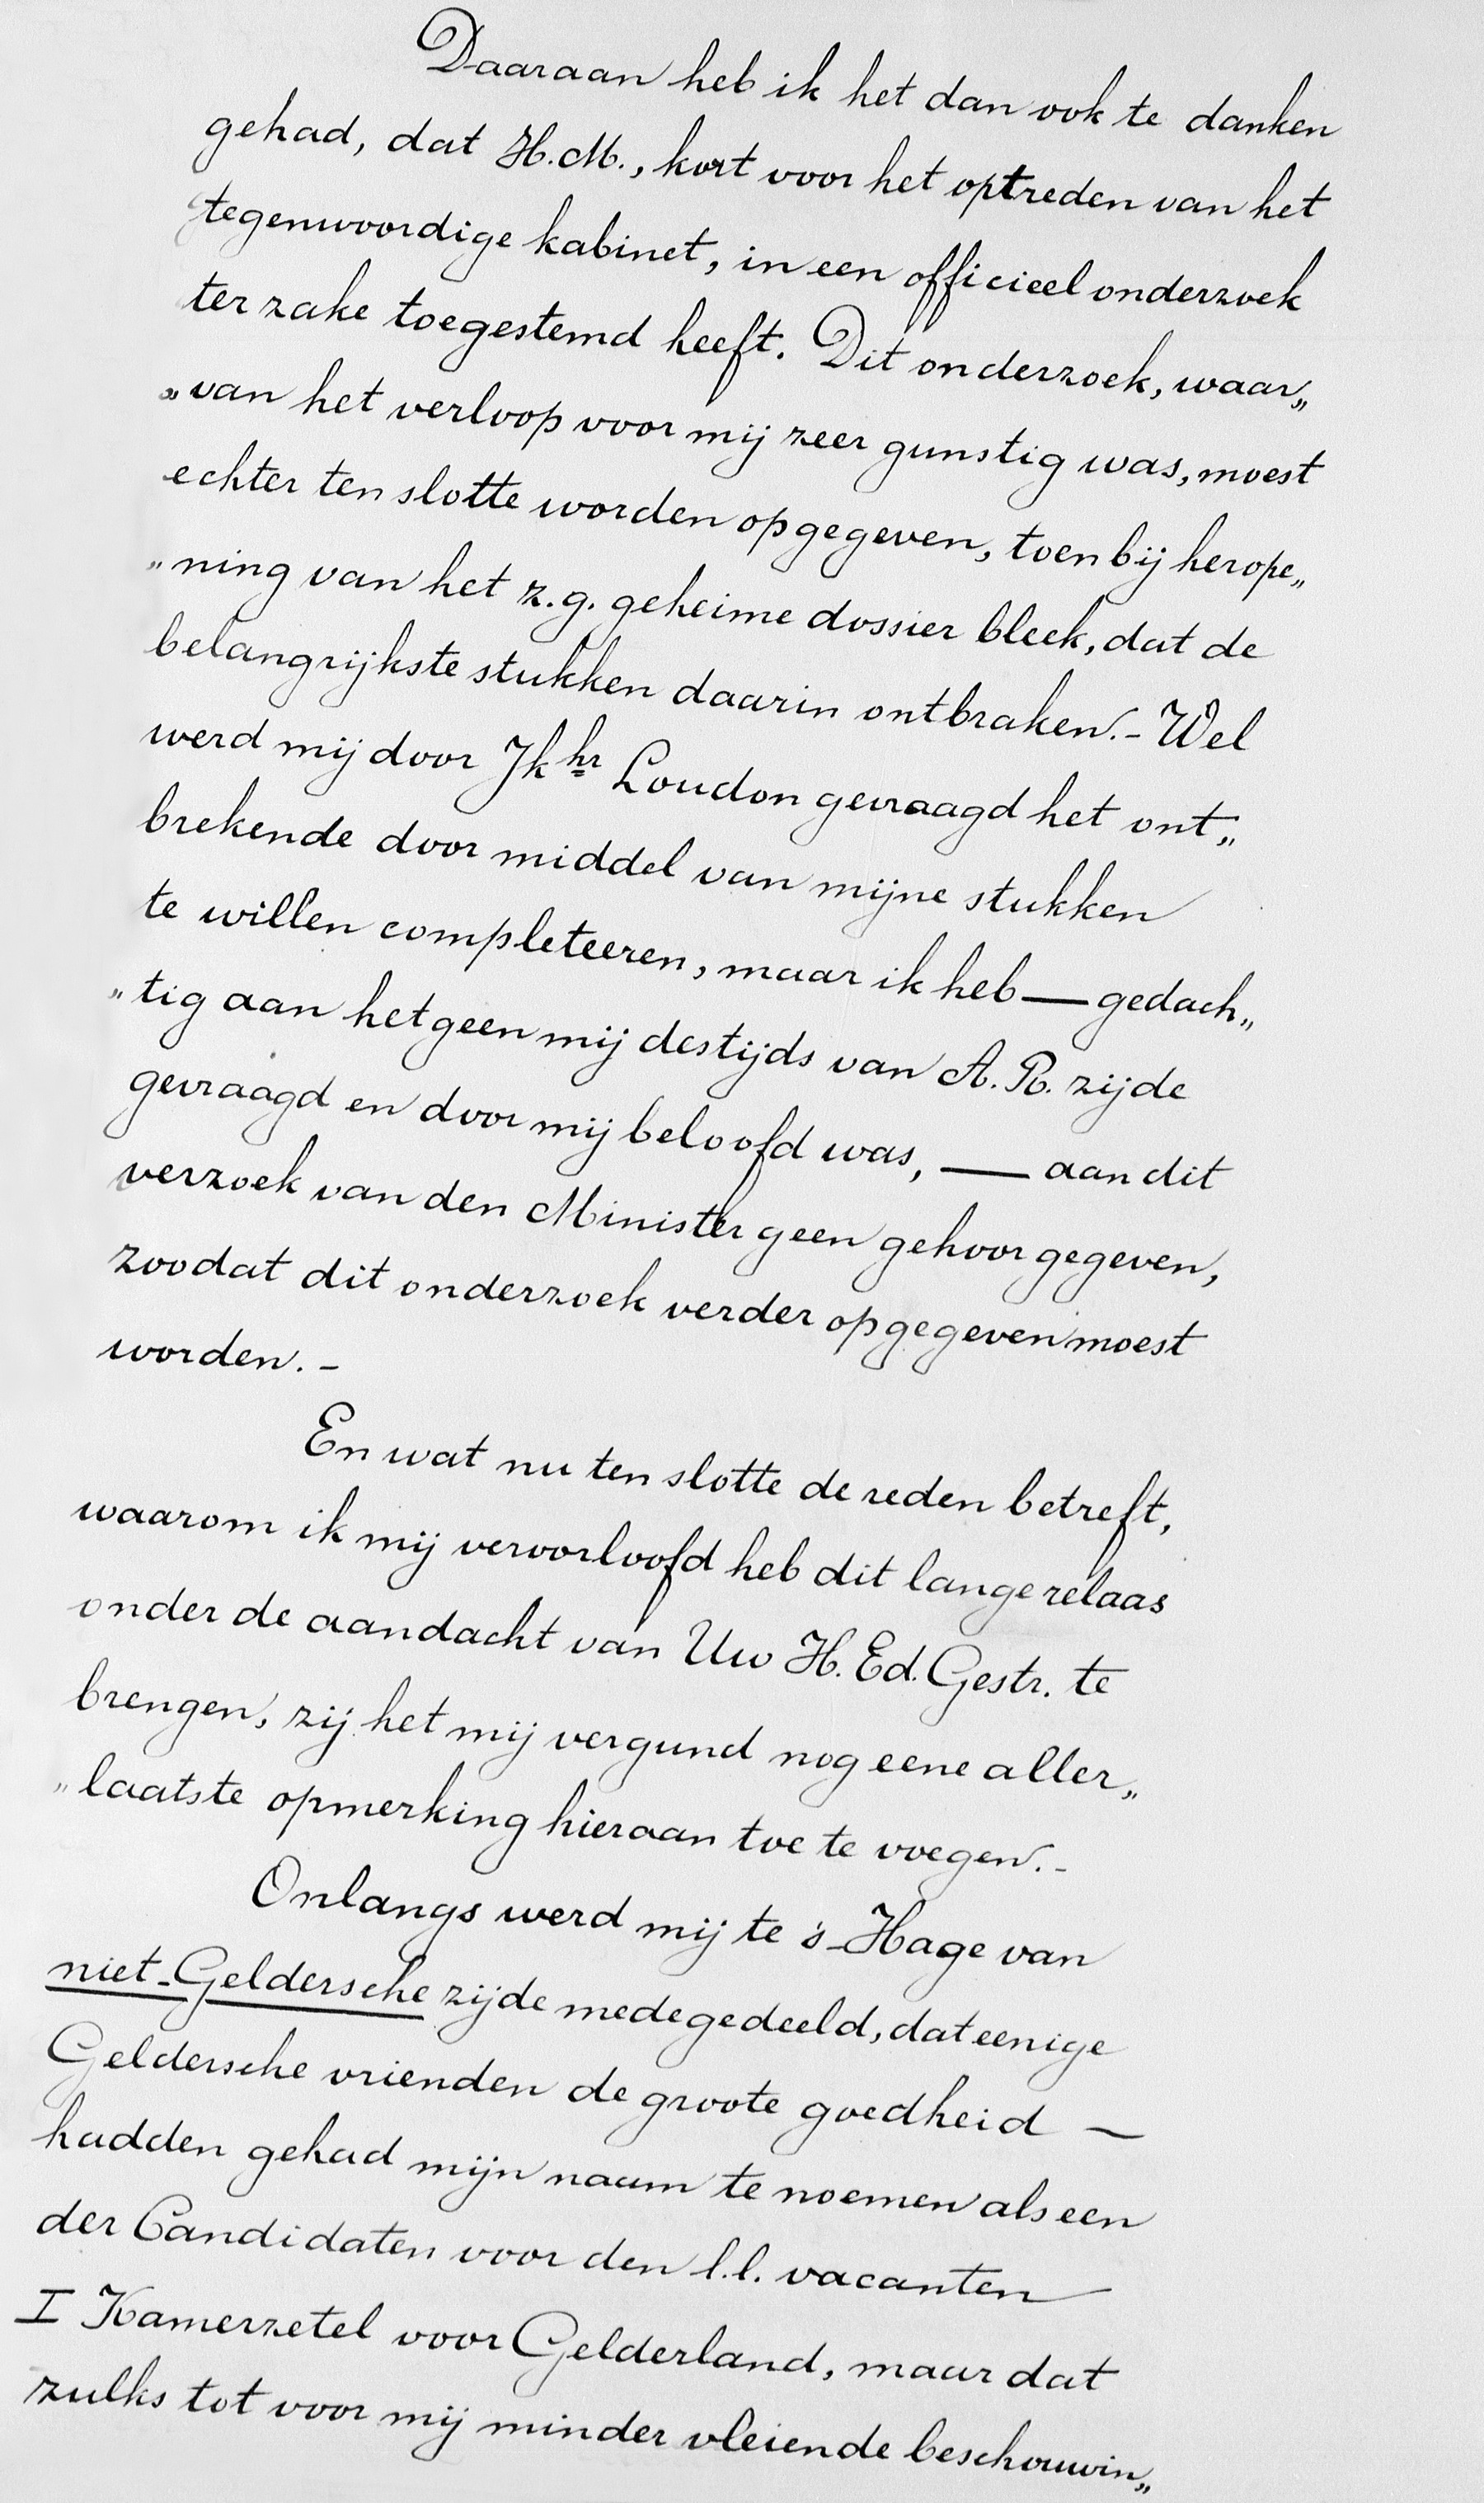 Daaraan heb ik het dan ook te danken
gehad, dat H.M., kort voor het optreden van het
tegenwoordige kabinet, in een officieel onderzoek
ter zake toegestemd heeft. Dit onderzoek, waar„
„van het verloop voor mij zeer gunstig was, moest
echter ten slotte worden opgegeven, toen bij herope„
„ning van het z.g. geheime dossier bleek, dat de
belangrijkste stukken daarin ontbraken. - Wel
werd mij door Jkhr Loudon gevraagd het ont„
brekende door middel van mijne stukken
te willen completeeren, maar ik heb — gedach„
„tig aan hetgeen mij destijds van A. R. zijde
gevraagd en door mij beloofd was, — aan dit
verzoek van den Minister geen gehoor gegeven,
zoodat dit onderzoek verder opgegeven moest
worden. -
En wat nu ten slotte de reden betreft,
waarom ik mij veroorloofd heb dit lange relaas
onder de aandacht van Uw H. Ed. Gestr. te
brengen, zij het mij vergund nog eene aller„
„laatste opmerking hieraan toe te voegen. -
Onlangs werd mij te 's-Hage van
niet-Geldersche zijde medegedeeld, dat eenige
Geldersche vrienden de groote goedheid —
hadden gehad mijn naam te noemen als een
der Candidaten voor den l.l. vacanten
I Kamerzetel voor Gelderland, maar dat
zulks tot voor mij minder vleiende beschouwin„